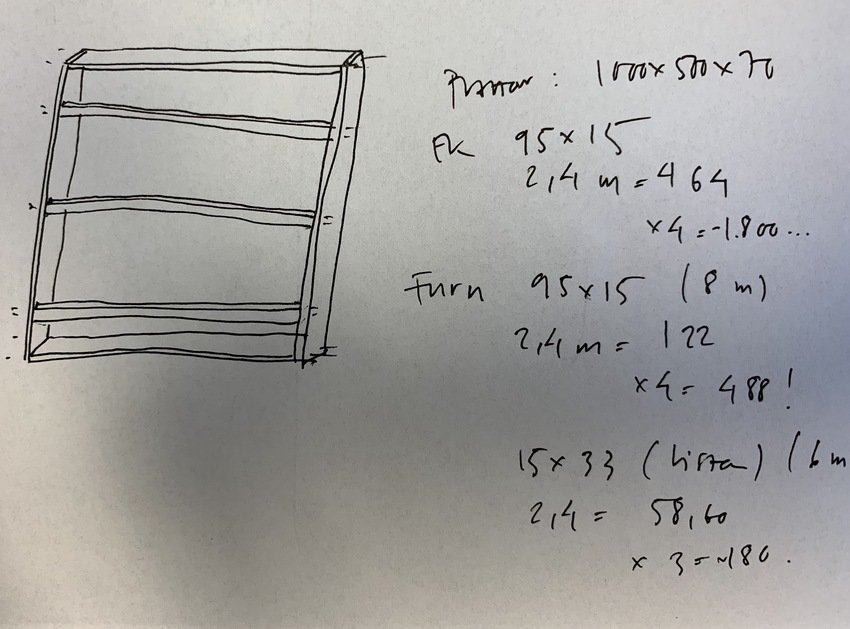 : 1000 x 500 x 70
EK 95 x 15
2,4 m = 464
x 4 = ~1.800 ...
Furu 95 x 15 (8 m)
2,4 m = 122
x 4 = 488!
15 x 33 (listar) (6 m
2,4 = 58,60
x 3 = ~180.